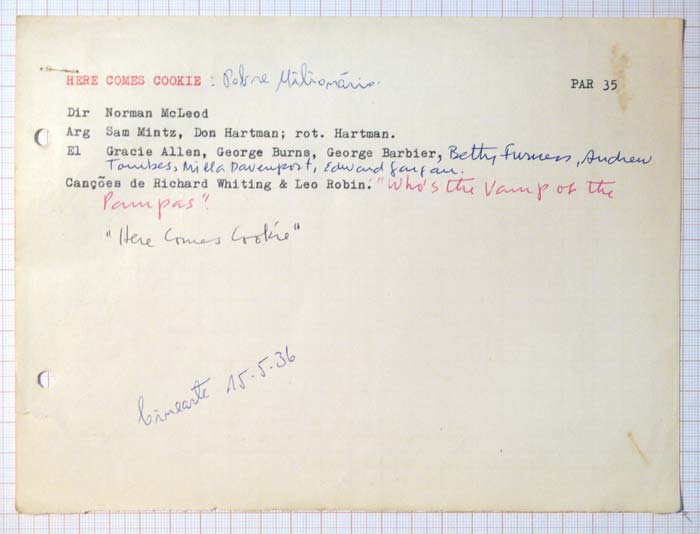 HERE COMES COOKIE : Pobre Milionário. PAR 35
Dir Norman McLeod
Arg Sam Mintz, Don Hartman; rot. Hartman.
El Gracie Allen, George Burns, George Barbier, Betty Furness, Andrew
Tombes, Milla Davenport, Edward Gargan.
Canções de Richard Whiting & Leo Robin. "Who's the Vamp of the
Pampas".
"Here Comes Cookie"
Cinearte 15-5-36